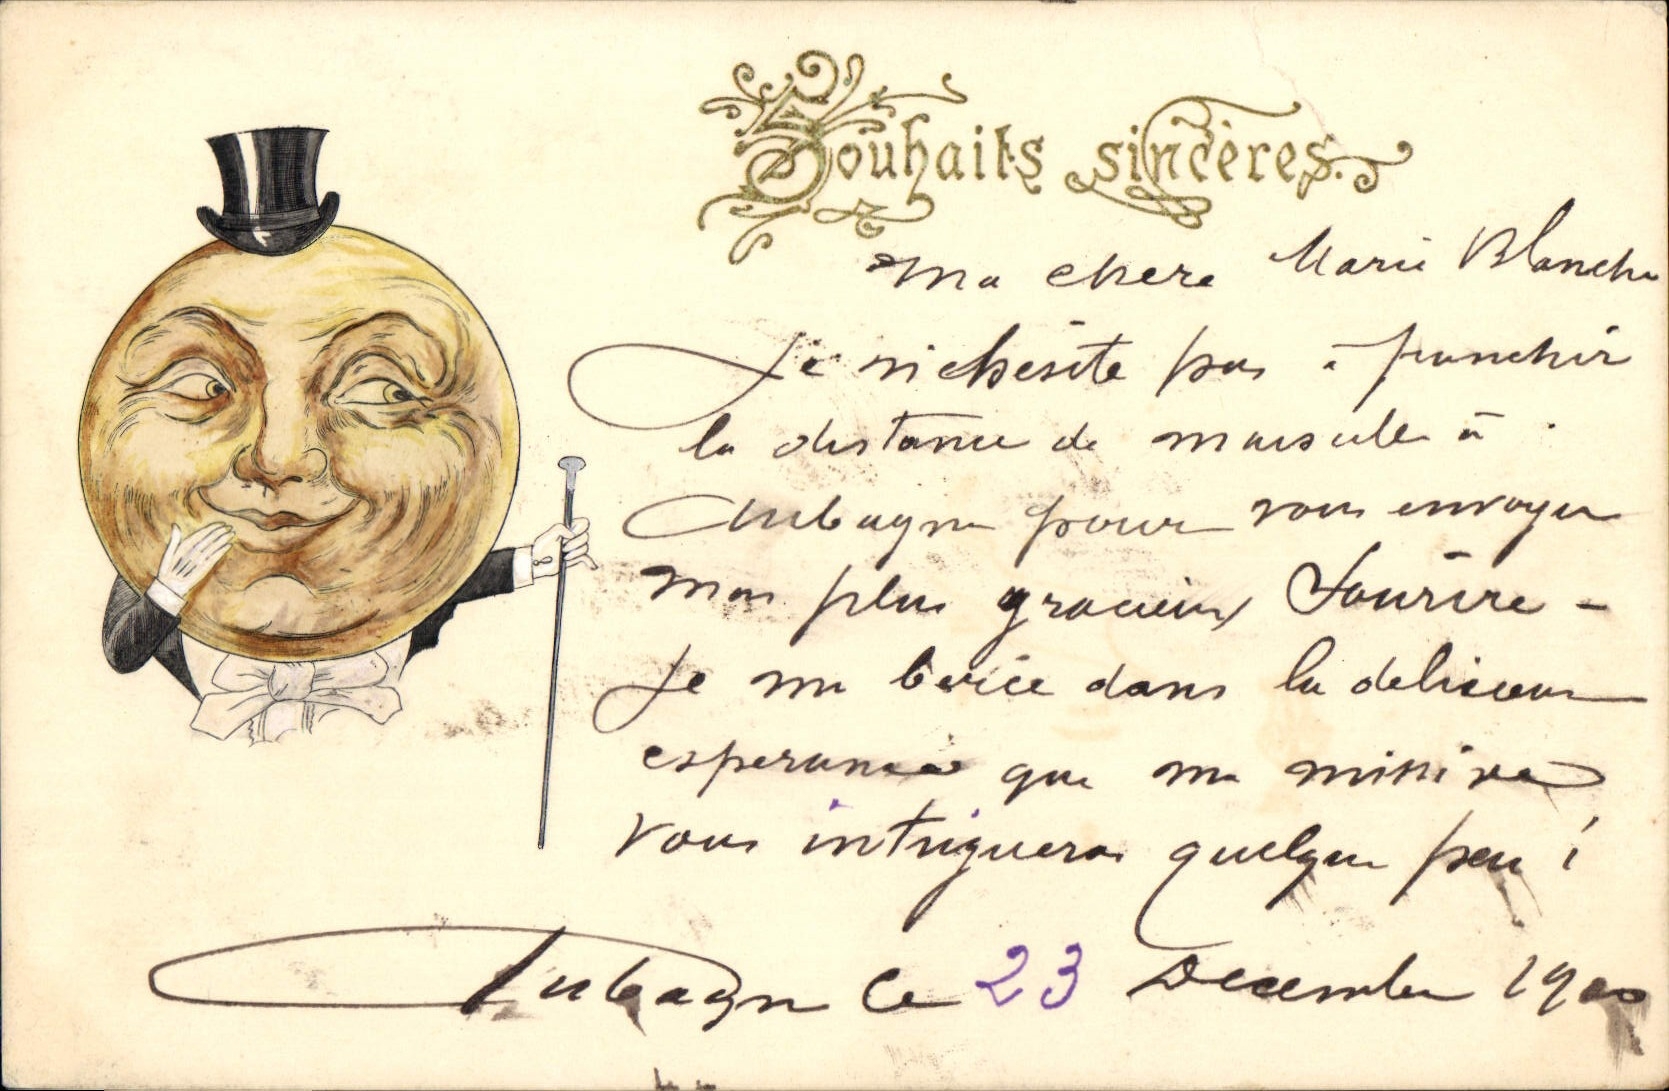 Souhaits sincères.
Ma chere Marie Blanche
Je n'ehésite pas à franchir
la distance de marseille à
Aubagne pour vous envoyer
mon plus gracieux Sourire -
Je me berce dans la delicieuse
esperance que ma missive
vous intriguera quelque peu !
Aubagne le 23 Decembre 1900